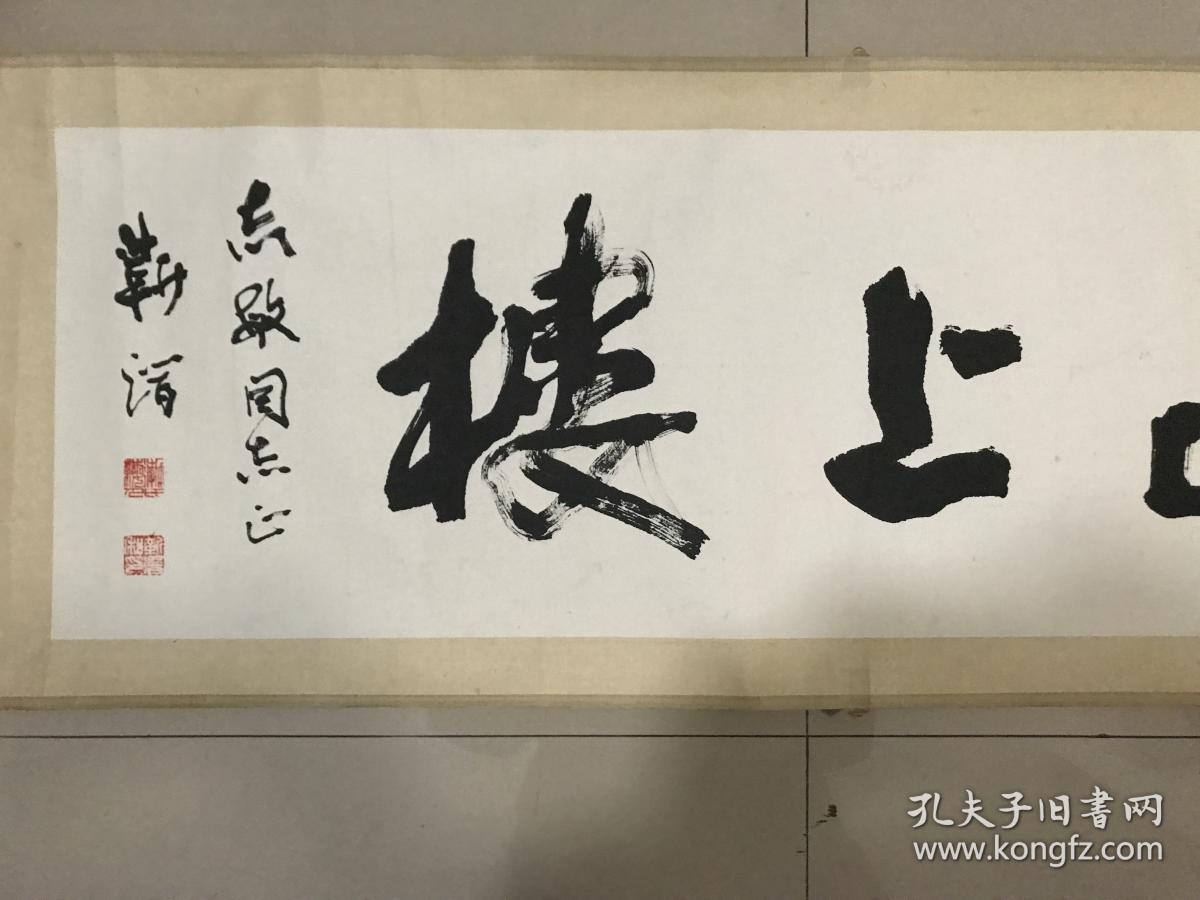 上樓
志敏同志正
靳谞
孔夫子旧书网
www.kongfz.com